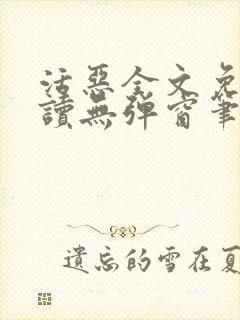 活惡全文免
讀無彈窗筆
遺忘的雪在夏